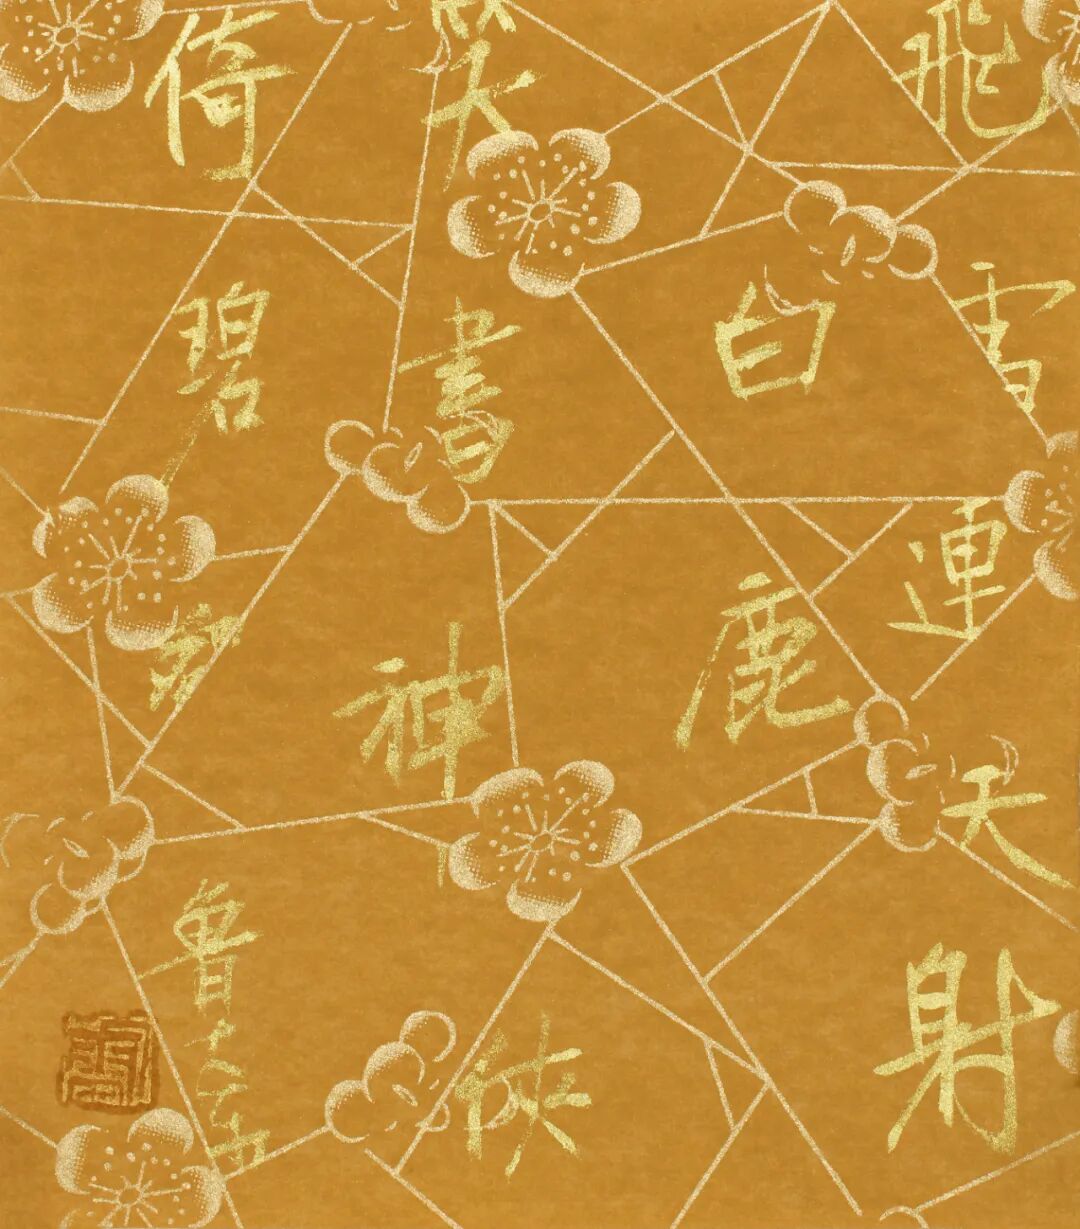 飛雪連天射
白鹿
笑書神俠
倚碧鴛
魯